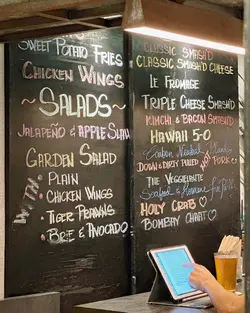 Sweet Potato Fries
Chicken Wings
~ Salads ~
Jalapeño & Apple Slaw
Garden Salad
With:
. Plain
. Chicken Wings
. Tiger Prawns
. Brie & Avocado
Classic Smash'd
Classic Smash'd Cheese
Le Fromage
Triple Cheese Smash'd
Kimchi & Bacon Smash'd
Hawaii 5-O
Carbon Neutral
Down & Dirty Pulled Pork
Hot
The Vegelante
Seafood &
Holy Crab
Bombay Chart